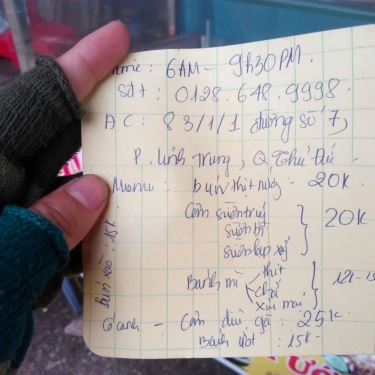 Time: 6AM - 9h30PM.
Sđt: 0128.648.9998
ĐC: 83/1/1 đường số 7,
P. Linh Trung, Q Thủ Đức
Menu: bún thịt nướng - 20K
Cơm sườn trứ
sườn bì
sườn lạp xưở
20K
Bánh mì
thịt
chả
xíu mại
12k-15
Bún xào: 15k
Cơm đùi gà: 25k
Bánh ướt: 15k